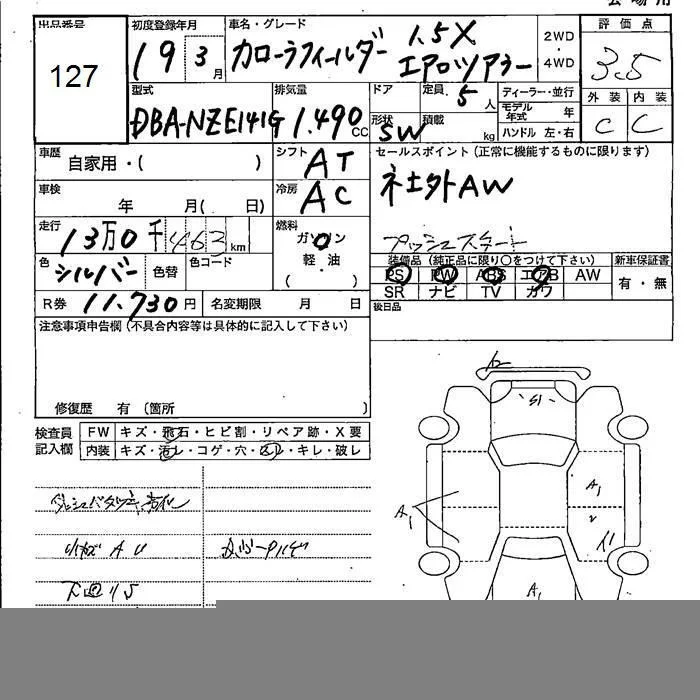 会場用
出品番号 初度登録年月 車名・グレード 評価点
127 19年3月 カローラフィールダー 1.5X エアロツアラー 2WD・4WD 3.5
型式 排気量 ドア 定員 ディーラー・並行 外装 内装
DBA-NZE141G 1.490cc 形状 SW 5人 積載 kg モデル年式 年 ハンドル 左・右 C C
車歴 自家用・( ) シフト AT セールスポイント(正常に機能するものに限ります)
車検 年 月( 日) 冷房 AC 社外AW
走行 13万0千463km 燃料 ガソリン プッシュスタート
軽・油 ( ) 装備品(純正品に限り○をつけて下さい) 新車保証書
色 シルバー 色替 色コード PS PW ABS エアB AW 有・無
SR ナビ TV カワ
R券 11.730円 名変期限 月 日 後日品
注意事項申告欄(不具合内容等は具体的に記入して下さい)
修復歴 有(箇所 )
検査員 FW キズ・飛石・ヒビ割・リペア跡・X要
記入欄 内装 キズ・汚レ・コゲ・穴・スレ・キレ・破レ
小キズ AU
下回りS
A1
A1
2
A1